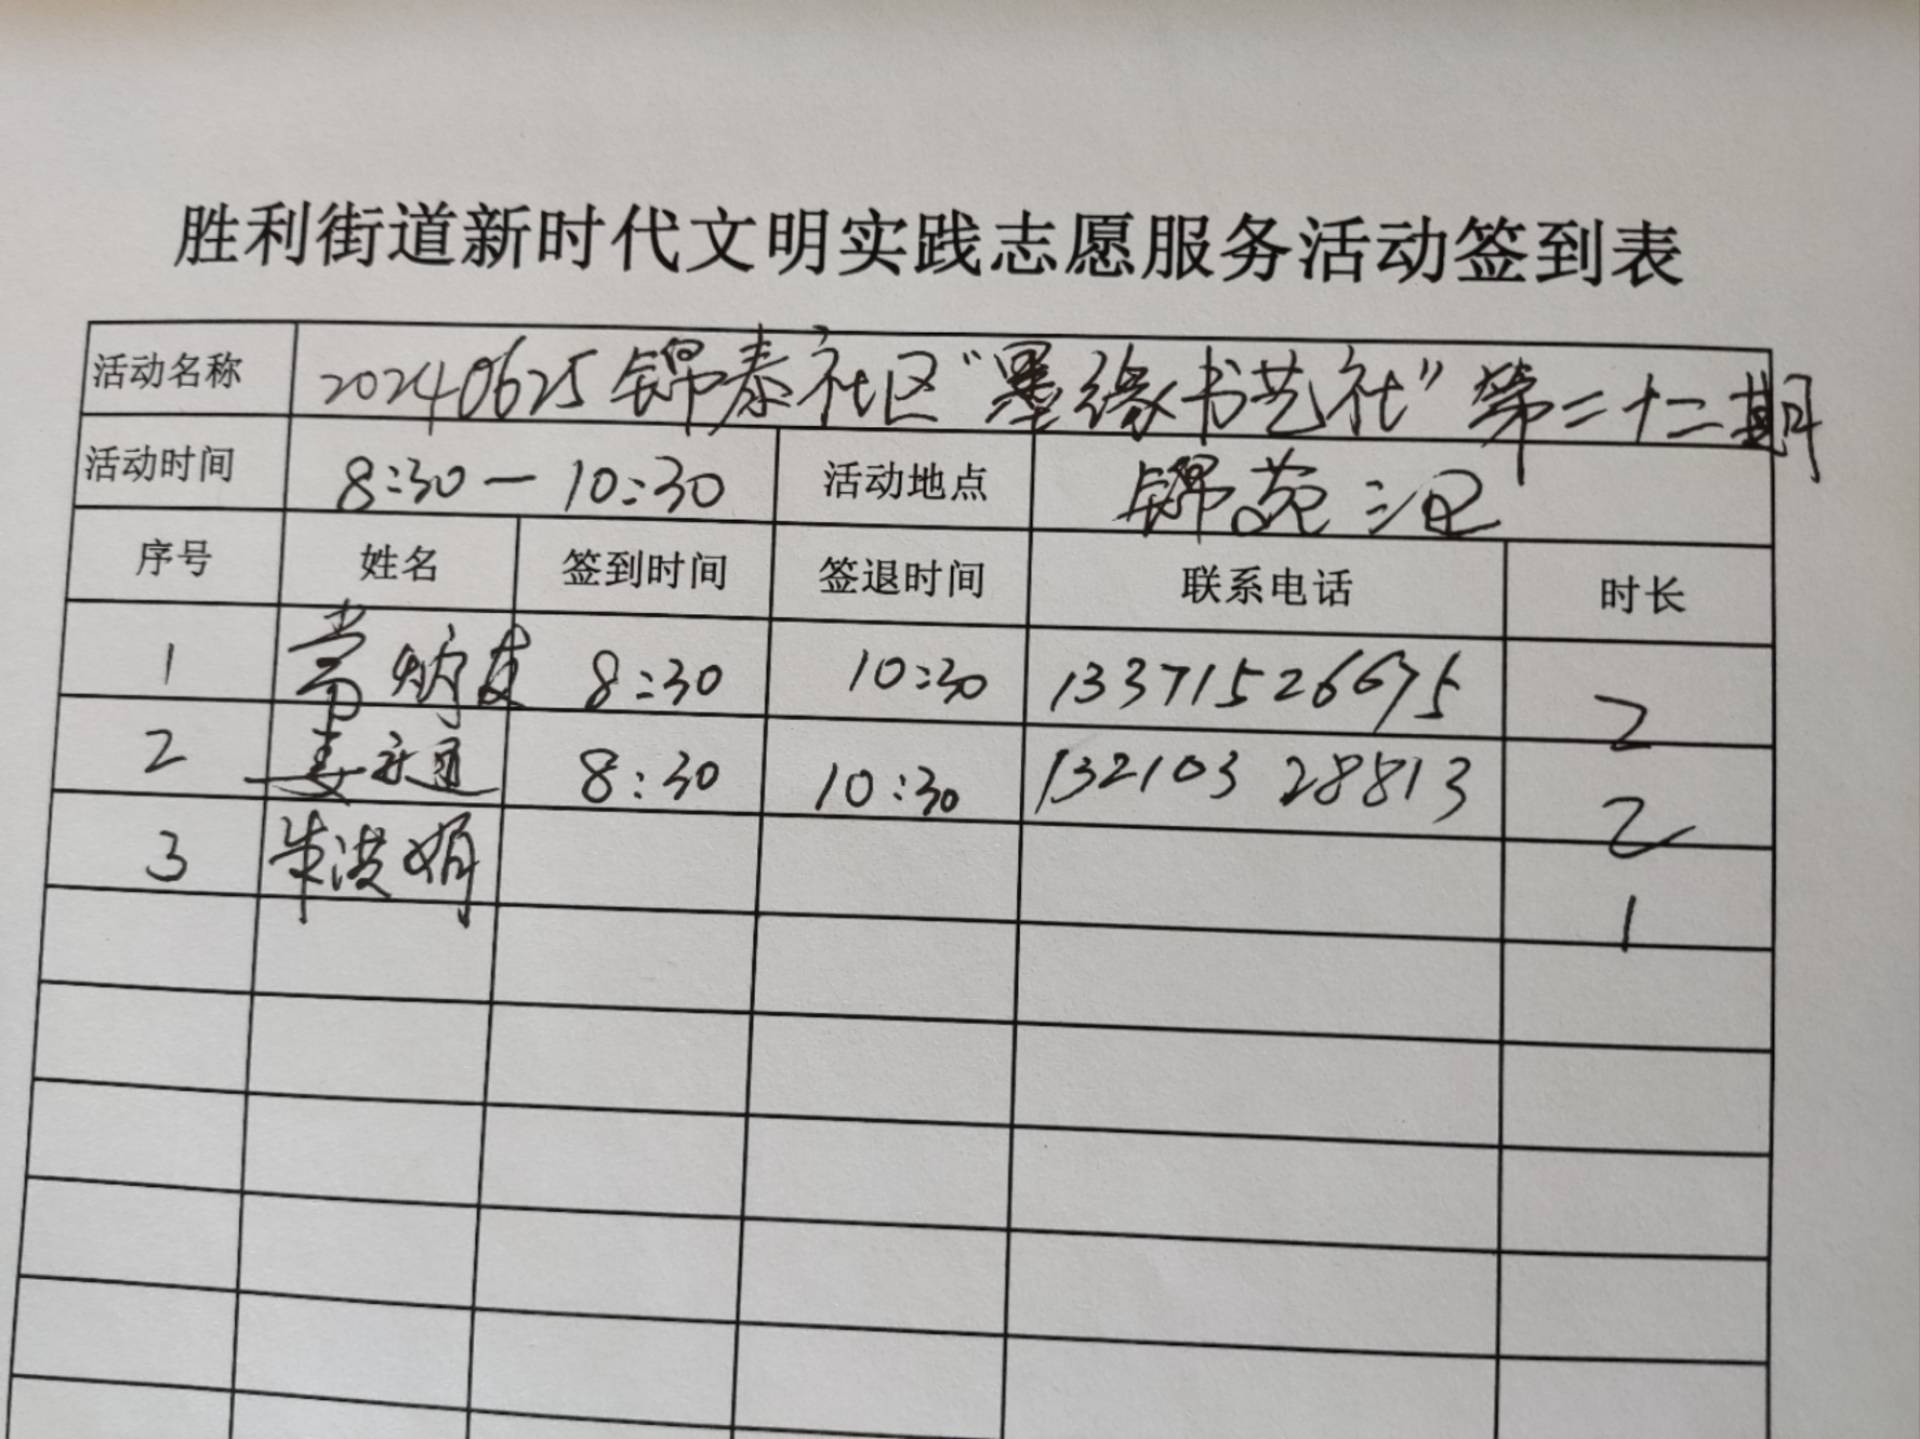 胜利街道新时代文明实践志愿服务活动签到表
活动名称 20240625锦泰社区“墨缘书艺社”第二十二期
活动时间 8:30—10:30 活动地点 锦苑三区
序号 姓名 签到时间 签退时间 联系电话 时长
1 常炳友 8:30 10:30 13371526675 2
2 姜永通 8:30 10:30 13210328813 2
3 朱洪娟 1